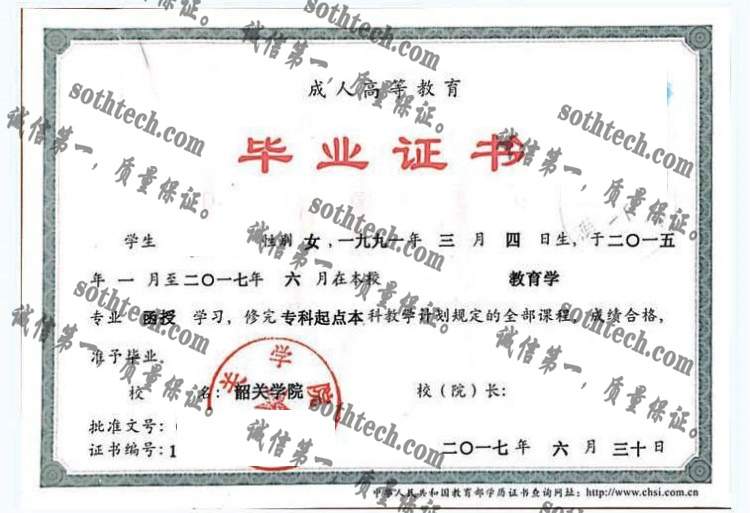 成人高等教育
毕业证书
学生 性别 女,一九九一年 三 月 四 日生,于二〇一五
年 一 月至二〇一七年 六 月在本校 教育学
专业 函授 学习,修完专科起点本科教学计划规定的全部课程,成绩合格,
准予毕业.
校 名:韶关学院 校(院)长:
批准文号:
证书编号:1
二〇一七年 六 月 三十日
中华人民共和国教育部学历证书查询网址:http://www.chsi.com.cn
关 学 院
sothtech.com
诚信第一,质量保证。
sothtech.com
诚信第一,质量保证。
sothtech.com
诚信第一,质量保证。
sothtech.com
诚信第一,质量保证。
sothtech.com
诚信第一,质量保证。
sothtech.com
诚信第一,质量保证。
sothtech.com
诚信第一,质量保证。
sothtech.com
诚信第一,质量保证。